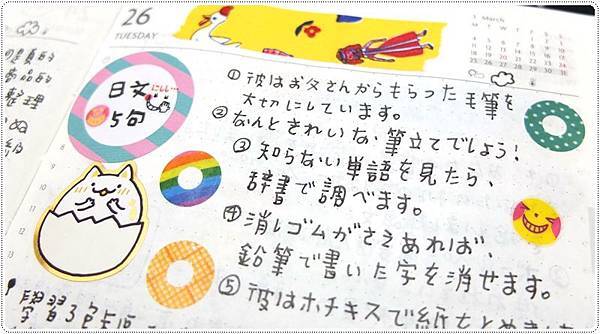 26
TUESDAY
March
日文
5句
① 彼はお父さんからもらった毛筆を
大切にしています。
② なんときれいな筆立てでしょう!
③ 知らない単語を見たら、
辞書で調べます。
④ 消しゴムがさえあれば、
鉛筆で書いた字を消せます。
⑤ 彼はホチキスで紙を
整理
學習了